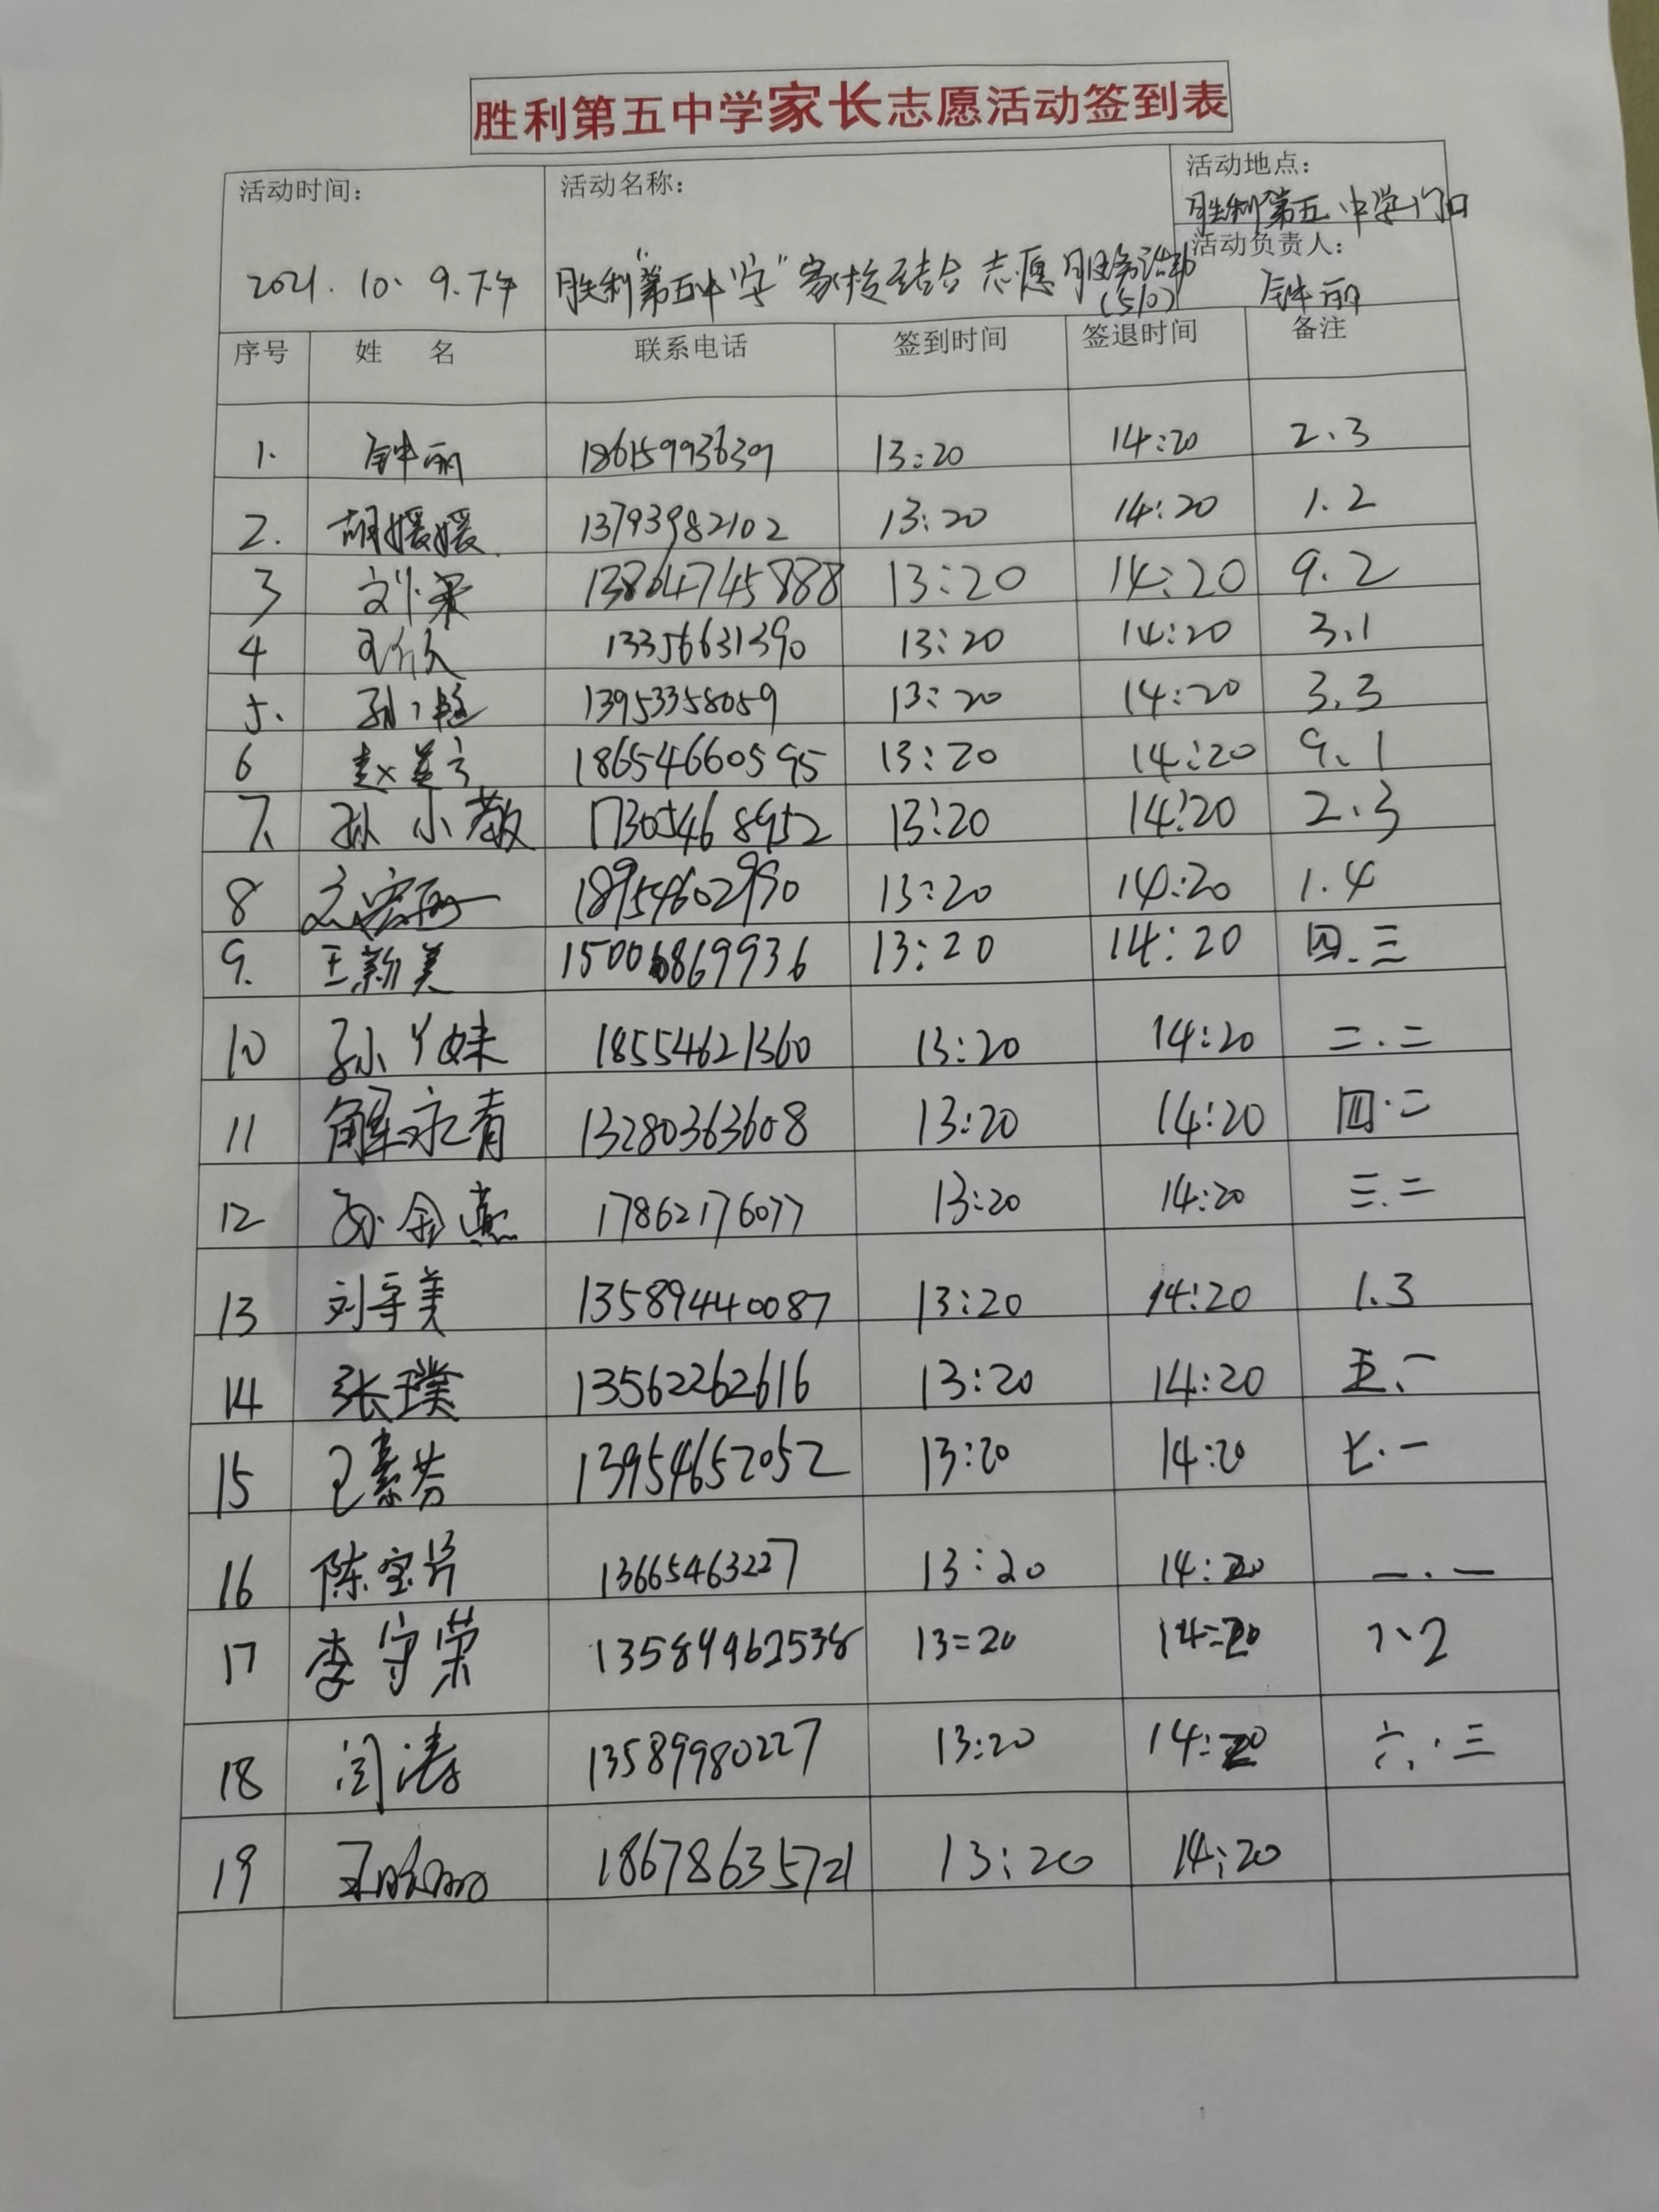 胜利第五中学家长志愿活动签到表
活动时间： 活动名称： 活动地点：
胜利第五中学门口
活动负责人：
2021.10.9.下午 胜利"第五中学"家校结合志愿服务活动 钟丽
(510)
序号 姓名 联系电话 签到时间 签退时间 备注
1. 钟丽 18615993639 13:20 14:20 2.3
2. 胡媛媛 13793982102 13:20 14:20 1.2
3 刘 13864745888 13:20 14:20 9.2
4 13356631390 13:20 14:20 3.1
5. 孙 13953358059 13:20 14:20 3.3
6 赵 18654660595 13:20 14:20 9.1
7、 孙小敏 17305468952 13:20 14:20 2.3
8 18954602990 13:20 14:20 1.4
9. 王新美 15006869936 13:20 14:20 四.三
10 孙丫妹 18554621360 13:20 14:20 二.二
11 解永青 13280363608 13:20 14:20 四.二
12 孙金燕 17862176077 13:20 14:20 三.二
13 刘美 13589440087 13:20 14:20 1.3
14 张璞 13562262616 13:20 14:20 五、一
15 王素芳 13954652052 13:20 14:20 七.一
16 陈宝芹 13665463227 13:20 14:20 一.一
17 李守荣 13589962538 13=20 14=20 7、2
18 闫涛 13589980227 13:20 14:20 六.三
19 王 18678635721 13:20 14:20